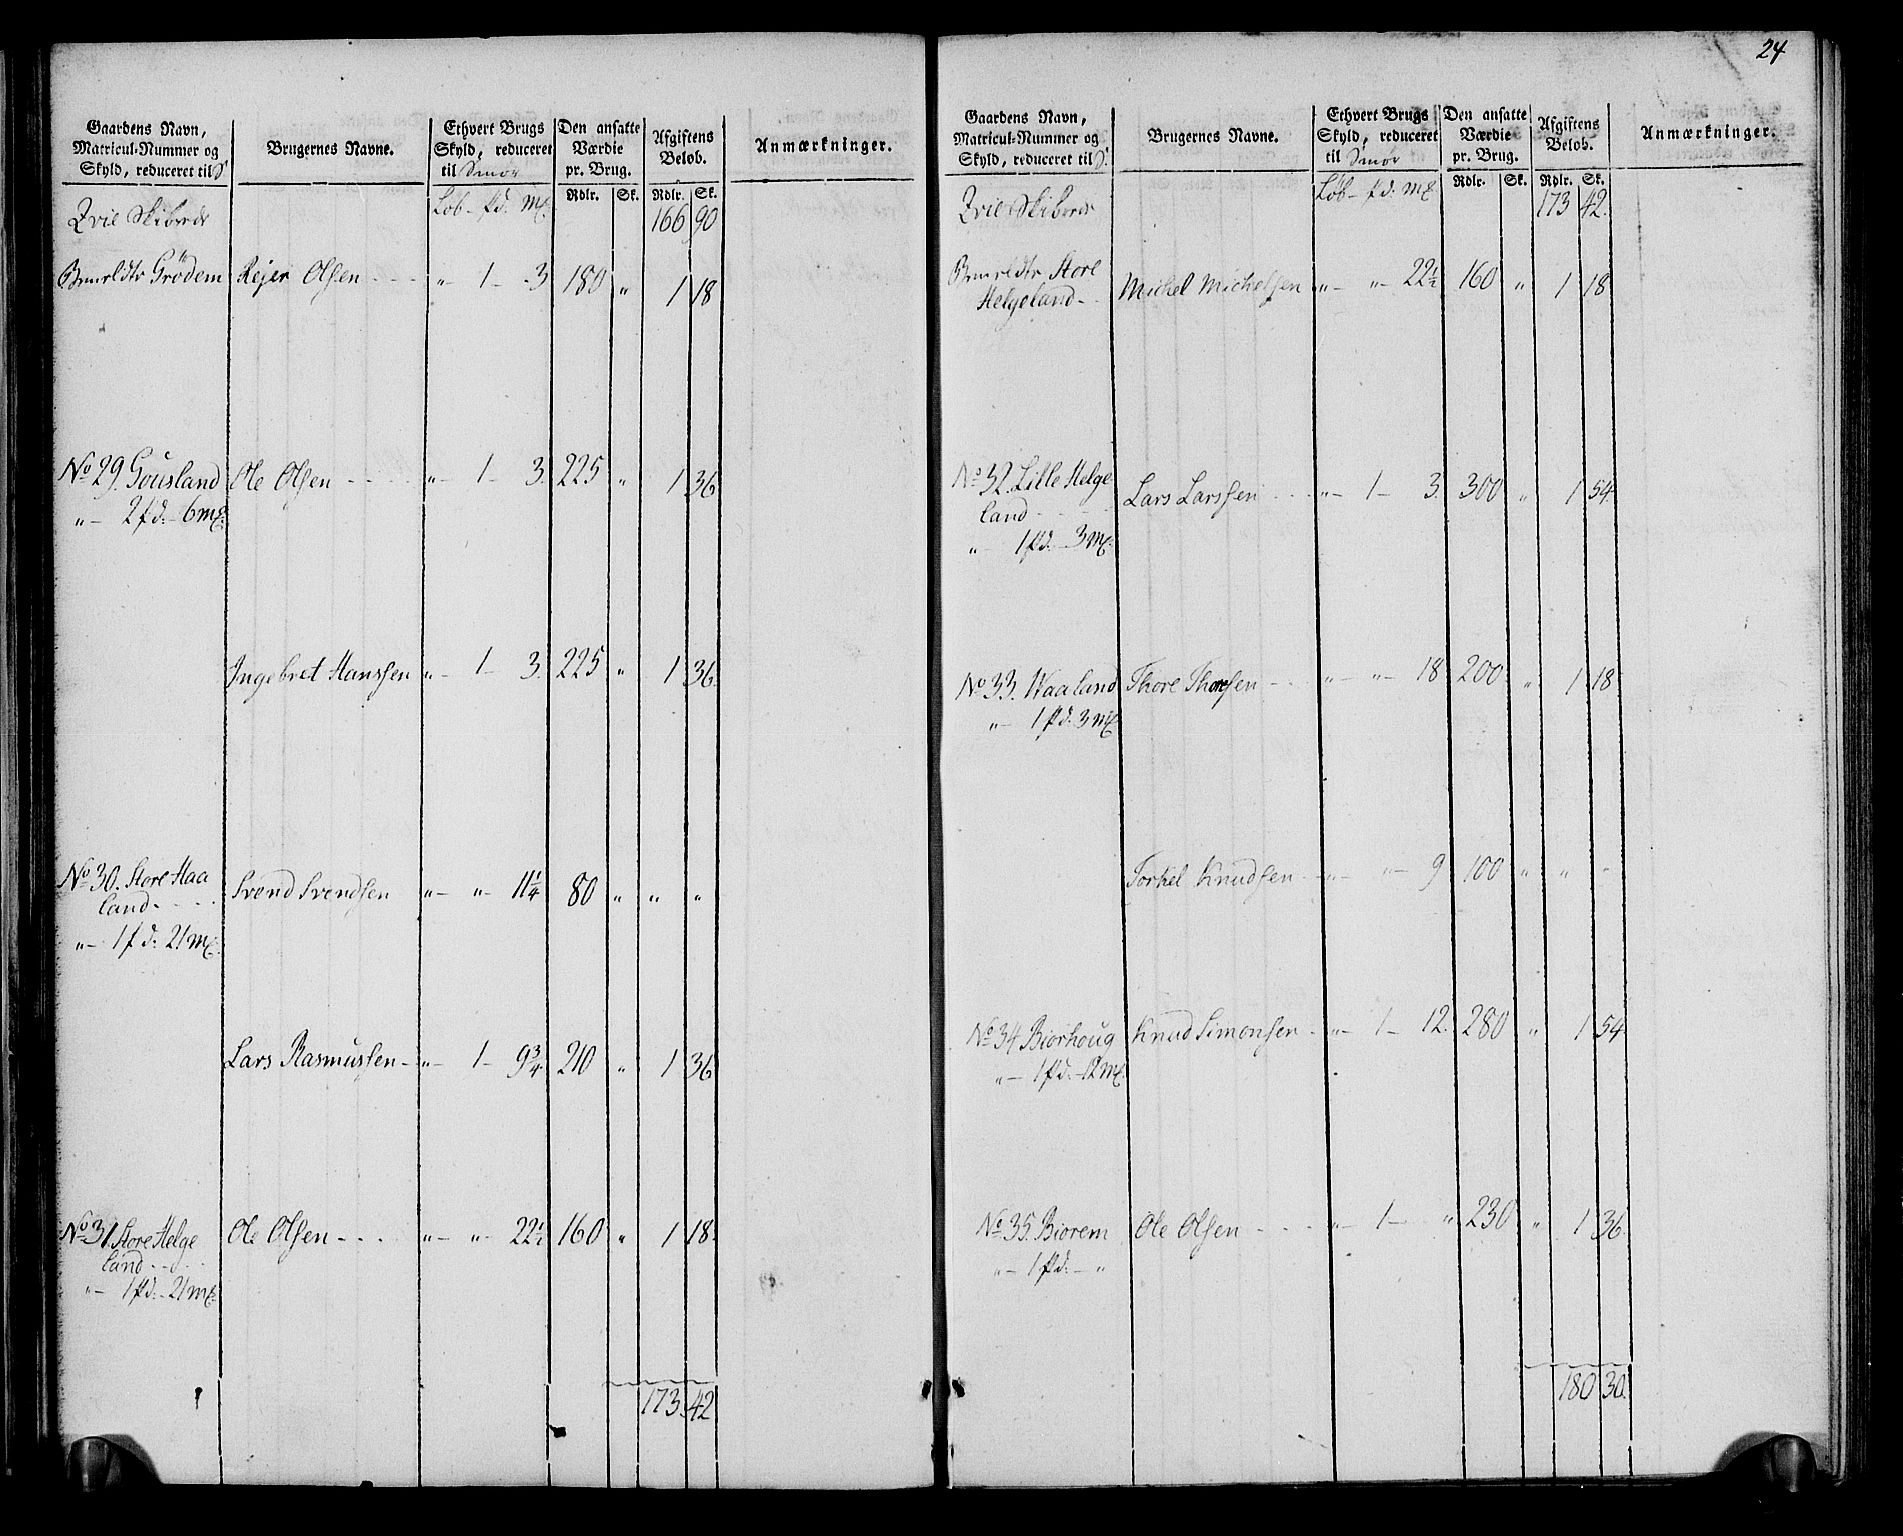 24
Gaardens Navn,
Matricul-Nummer og
Skyld, reduceret til S
Brugernes Navne.
Ethvert Brugs
Skyld, reduceret
til Smør
Den ansatte
Værdie
pr. Brug.
Afgiftens
Beløb.
Anmærkninger.
Løb - pd. mk
Rdlr. Sk. Rdlr. Sk.
Skibrede 166 90
Grödem Rejer Olsen - - - " - 1 - 3 180 " 1 18
No 29. Gousland Ole Olsen - - - - " - 1 - 3. 225 " 1 36
" - 2 pd: - 6 mk:
Ingebret Hanssen " - 1 - 3. 225 " 1 36.
No 30. Store Haa
land - - - - Svend Svendsen " - " - 11 1/4 80 " " "
" - 1 pd: 21 mk:
Lars Rasmussen - " - 1 - 9 3/4 210 " 1 36
No 31. Store Helge Ole Olsen - - - " - " - 22 1/2 160 " 1 18.
land - - - -
" - 1 pd: - 21 mk:
173. 42
Gaardens Navn,
Matricul-Nummer og
Skyld, reduceret til S.
Brugernes Navne.
Ethvert Brugs
Skyld, reduceret
til Smør
Den ansatte
Værdie
pr. Brug.
Afgiftens
Beløb.
Anmærkninger.
Løb - pd. mk
Rdlr. Sk. Rdlr. Sk.
Skibrede 173 42.
Store
Helgeland - - Michel Michelsen " - " - 22 1/2 160 " 1 18
No 32. Lille Helge
land - - - - Lars Larssen - - - " - 1 - 3. 300 " 1 54.
" - 1 pd. - 3 mk:
No 33. Waaland Thore Thorsen - - - " - " - 18 200 " 1 18
" - 1 pd. 3 mk
Torkel Knudsen - - " - " - 9 100 " " "
No 34 Biorhoug Knud Simonsen - " - 1 - 12. 280 " 1 54
" - 1 pd. - 12 mk.
No 35. Biorem Ole Olsen - - - - " - 1 - " 230 " 1 36.
" - 1 pd: - "
180 30.